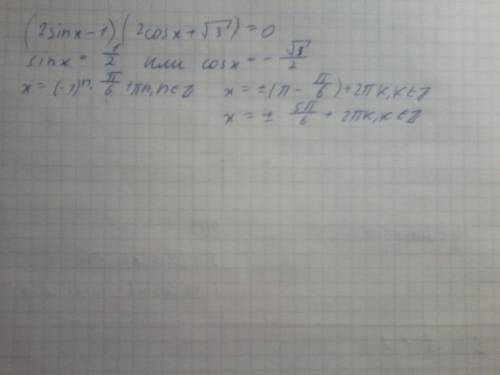 (2sinx-1)(2cosx+√3)=0
sinx = 1/2 или cosx = -√3/2
x = (-1)ⁿ · π/6 + πn, n∈Z x = ±(π - π/6) + 2πk, k∈Z
x = ± 5π/6 + 2πk, k∈Z